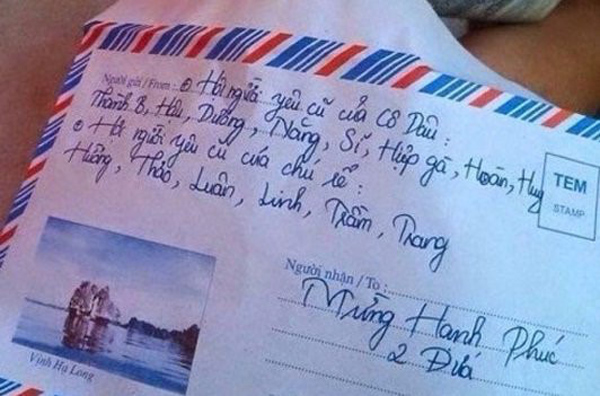 Người gửi / From : ⊙ Hội người yêu cũ của Cô Dâu :
Thành B, Hữu, Dưỡng, Năng, Sĩ, Hiệp gà, Hoàn, Huy
⊙ Hội người yêu cũ của chú rể :
Hường, Thảo, Luân, Linh, Trầm, Trang
TEM
STAMP
Người nhận / To :
Mừng Hạnh Phúc
2 Đứa
Vịnh Hạ Long